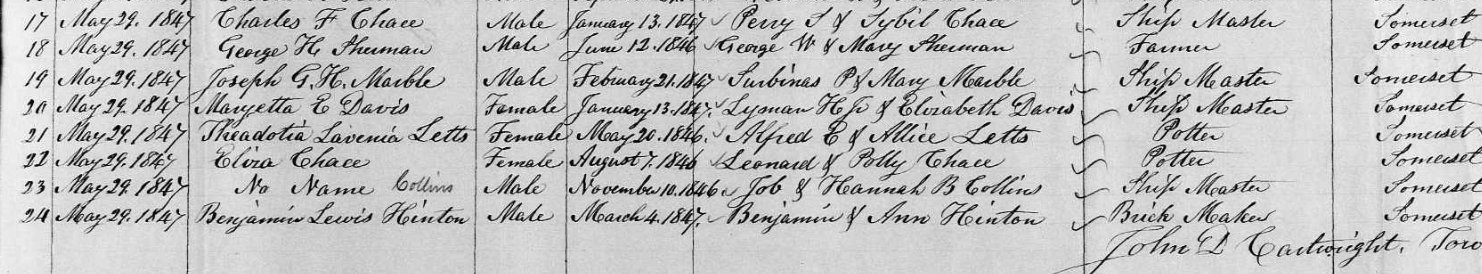 17 May 29. 1847 Charles F Chace Male January 13. 1847 Perry S & Sybil Chace Ship Master Somerset
18 May 29. 1847 George H. Sherman Male June 12. 1846 George W & Mary Sherman Farmer Somerset
19 May 29. 1847 Joseph G. H. Marble Male February 21. 1847 Surbinas P & Mary Marble Ship Master Somerset
20 May 29. 1847 Maryetta E Davis Famale January 13. 1847. Lyman & Elizabeth Davis Ship Master Somerset
21 May 29. 1847 Theadotia Lavenia Letts Female May 20. 1846. Alfred E & Allice Letts Potter Somerset
22 May 29. 1847 Eliza Chace Female August 7. 1846 Leonard & Polly Chace Potter Somerset
23 May 29. 1847 No Name Collins Male November 10. 1846 Job & Hannah B Collins Ship Master Somerset
24 May 29. 1847 Benjamin Lewis Hinton Male March 4. 1847. Benjamin & Ann Hinton Brick Maker Somerset
John D Cartwright. Tow